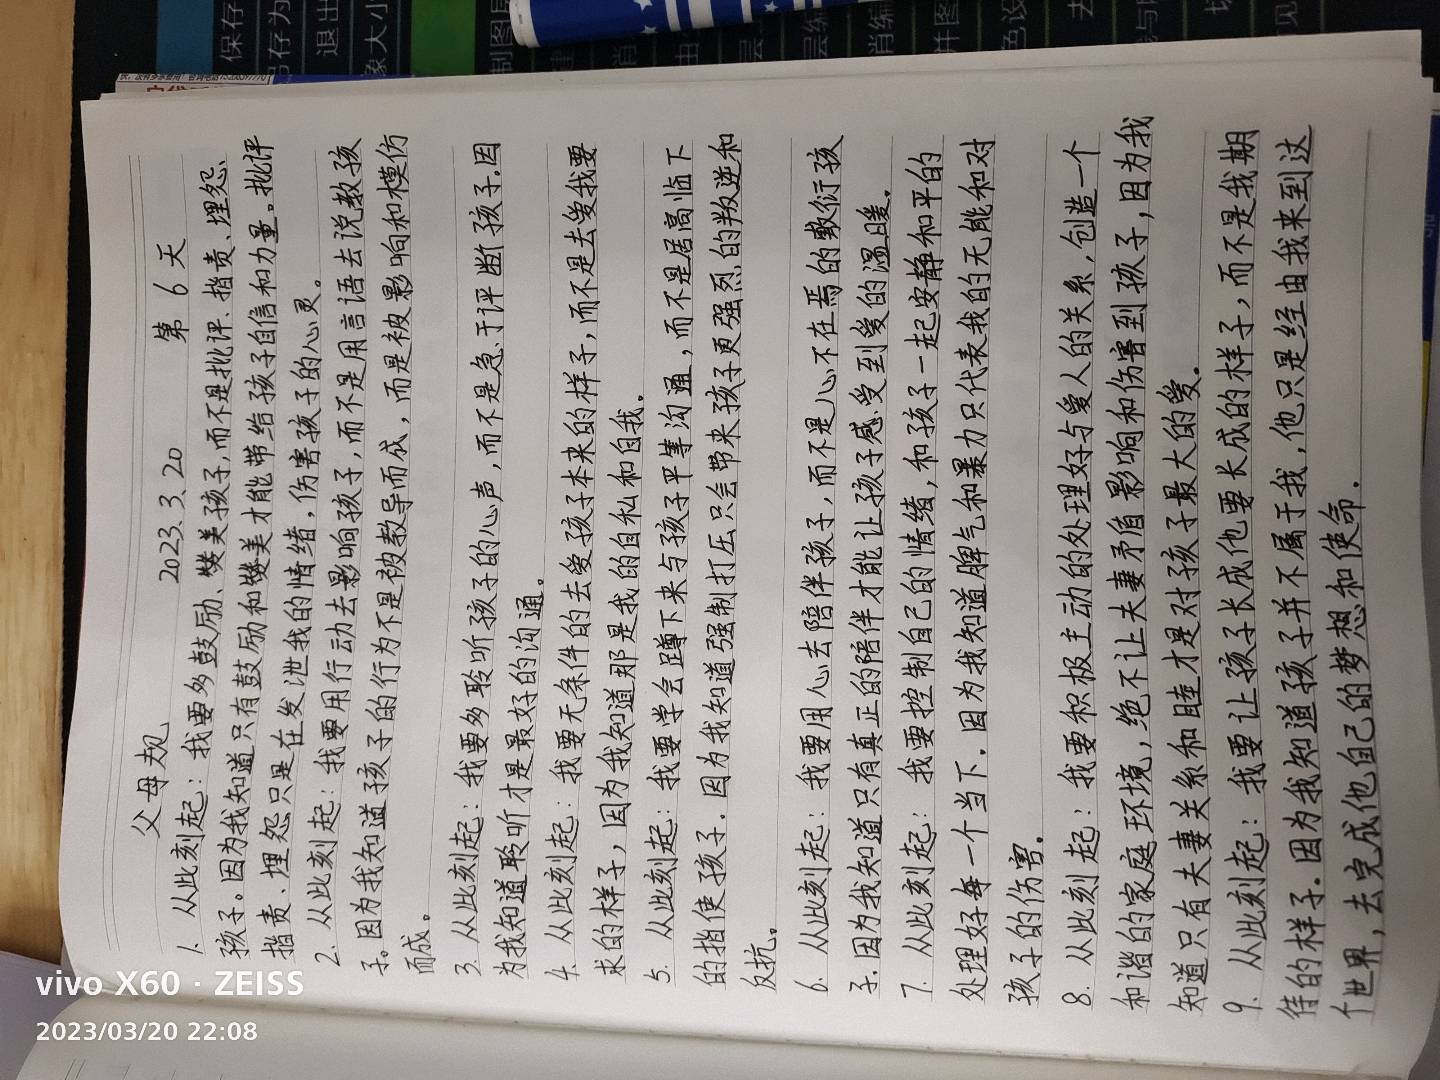 父母规
2023.3.20 第6天
1. 从此刻起：我要多鼓励、赞美孩子，而不是批评、指责、埋怨
孩子。因为我知道只有鼓励和赞美才能带给孩子自信和力量。批评
指责、埋怨只是在发泄我的情绪，伤害孩子的心灵。
2. 从此刻起：我要用行动去影响孩子，而不是用言语去说教孩
子。因为我知道孩子的行为不是被教导而成，而是被影响和模仿
而成。
3. 从此刻起：我要多聆听孩子的心声，而不是急于评断孩子.因
为我知道聆听才是最好的沟通。
4. 从此刻起：我要无条件的去爱孩子本来的样子，而不是去爱我要
求的样子，因为我知道那是我的自私和自我。
5. 从此刻起：我要学会蹲下来与孩子平等沟通，而不是居高临下
的指使孩子. 因为我知道强制打压只会带来孩子更强烈的叛逆和
反抗。
6. 从此刻起：我要用心去陪伴孩子，而不是心不在焉的敷衍孩
子.因为我知道只有真正的陪伴才能让孩子感受到爱的温暖。
7. 从此刻起：我要控制自己的情绪，和孩子一起安静和平的
处理好每一个当下. 因为我知道脾气和暴力只代表我的无能和对
孩子的伤害。
8. 从此刻起：我要积极主动的处理好与爱人的关系，创造一个
和谐的家庭环境，绝不让夫妻矛盾影响和伤害到孩子，因为我
知道只有夫妻关系和睦才是对孩子最大的爱。
9. 从此刻起：我要让孩子长成他要长成的样子，而不是我期
待的样子.因为我知道孩子并不属于我，他只是经由我来到这
个世界，去完成他自己的梦想和使命.
vivo X60 · ZEISS
2023/03/20 22:08